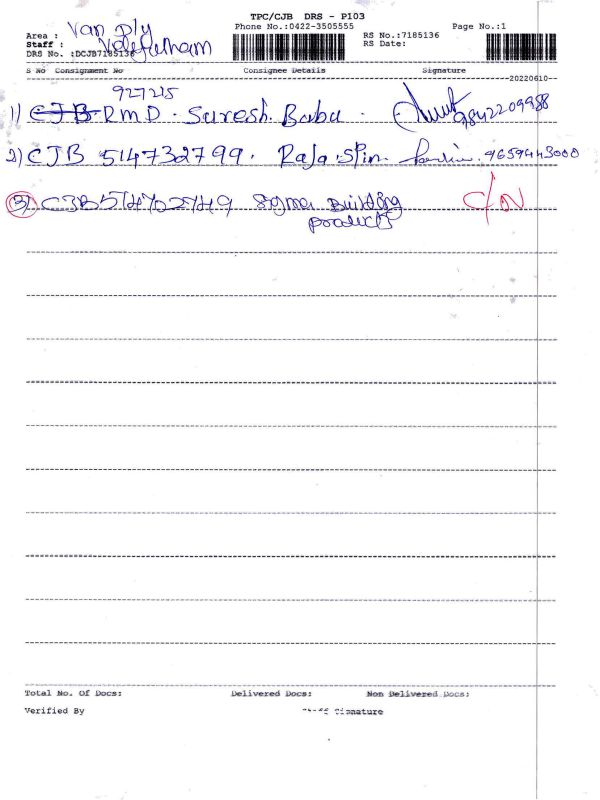 TPC/CJB DRS - P103
Phone No.:0422-3505555
Page No.:1
Area : Van Dly
Staff :
RS No.:7185136
RS Date:
DRS No. :DCJB7185136
S NO Consignment No Consignee Details Signature
20220610
927215
1) CJB RMD. Suresh. Babu. 9842209988
2) CJB 514732799. Raja. Spin. 9659443000
3) CJB514702749 Sigma Building C/N
products
Total No. Of Docs: Delivered Docs: Non Delivered Docs:
Verified By Staff Signature